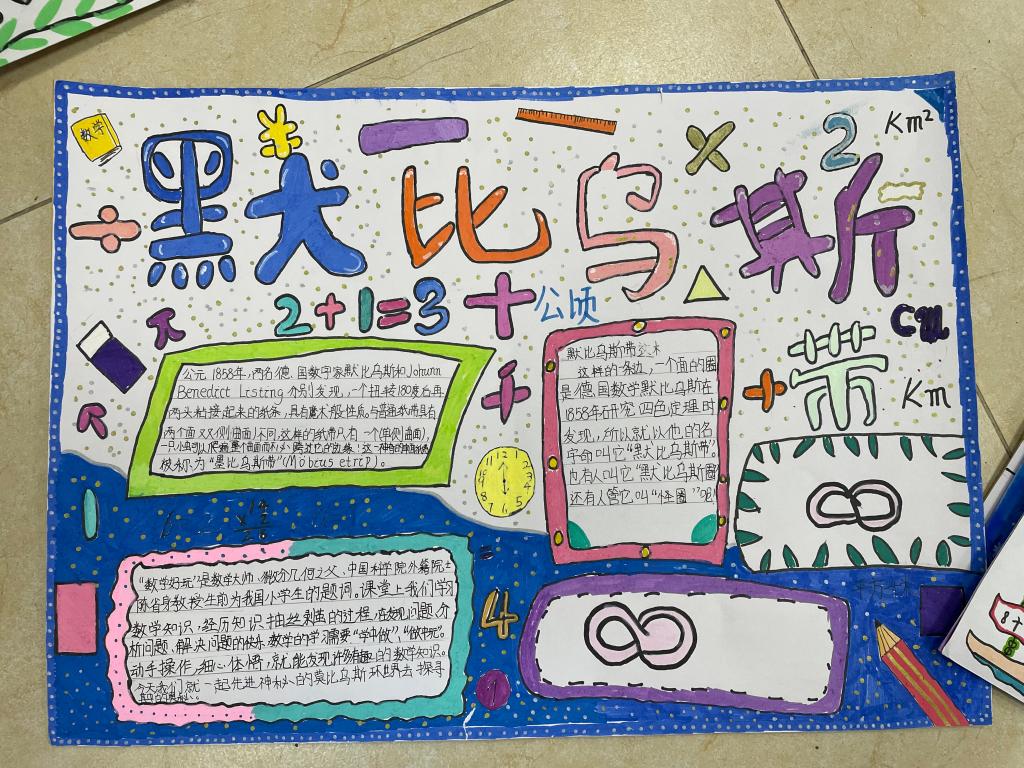 数学
默比乌斯
2
Km²
2+1=3
公顷
cm
带
Km
公元1858年,两名德国数学家默比乌斯和Johann
Benedict Listing 分别发现,一个扭转180度后再
两头粘接起来的纸条,具有魔术般性质,与普通纸带具有
两个面双侧曲面)不同,这样的纸带只有一个(单侧曲面),
被称为“墨比乌斯带”(Möbius etrip)。
默比乌斯带
这样的条边,一个面的圈
是德国数学默比乌斯在
1858年研究四色定理时
发现,所以就以他的名
字命叫它“默比乌斯的带”
也有人叫它“默比乌斯圈
还有人管它叫“怪圈”吧!
“数学好玩”是数学大师、微分几何之父、中国科学院外籍院士
陈省身教授生前为我国小学生的题词。课堂上我们学习
数学知识,经历知识抽丝剥茧的过程,在发现问题、分
析问题、解决问题的快乐数学的学习需要“学中做”,“做中玩”。
动手操作,细心体悟,就能发现许多有趣的数学知识。
今天我们就一起先进神秘的莫比乌斯环世界去探寻
4